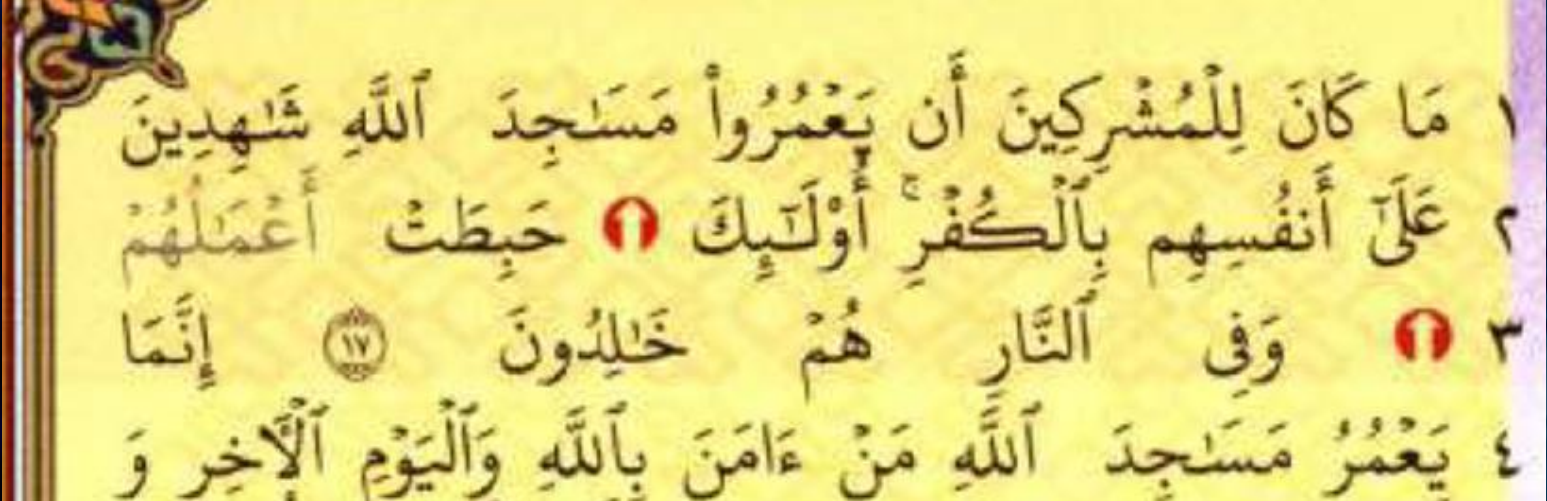 ١ مَا كَانَ لِلْمُشْرِكِينَ أَن يَعْمُرُوا۟ مَسَـٰجِدَ ٱللَّهِ شَـٰهِدِينَ
٢ عَلَىٰٓ أَنفُسِهِم بِٱلْكُفْرِ ۚ أُو۟لَـٰٓئِكَ ١ حَبِطَتْ أَعْمَـٰلُهُمْ
٣ ١ وَفِى ٱلنَّارِ هُمْ خَـٰلِدُونَ ١٧ إِنَّمَا
٤ يَعْمُرُ مَسَـٰجِدَ ٱللَّهِ مَنْ ءَامَنَ بِٱللَّهِ وَٱلْيَوْمِ ٱلْـَٔاخِرِ وَ